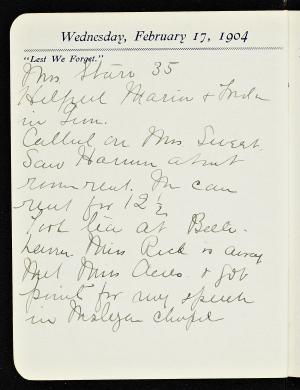 Wednesday, February 17, 1904
"Lest We Forget."
Mrs Starr 35
Helped Maria &
in Gym.
Called on Mrs Sweet.
Saw Harmon about
room rent. He can
rent for 12 ½
Took tea at Belle.
Miss Rich is away
Met Miss & got
points for my speech
in chapel